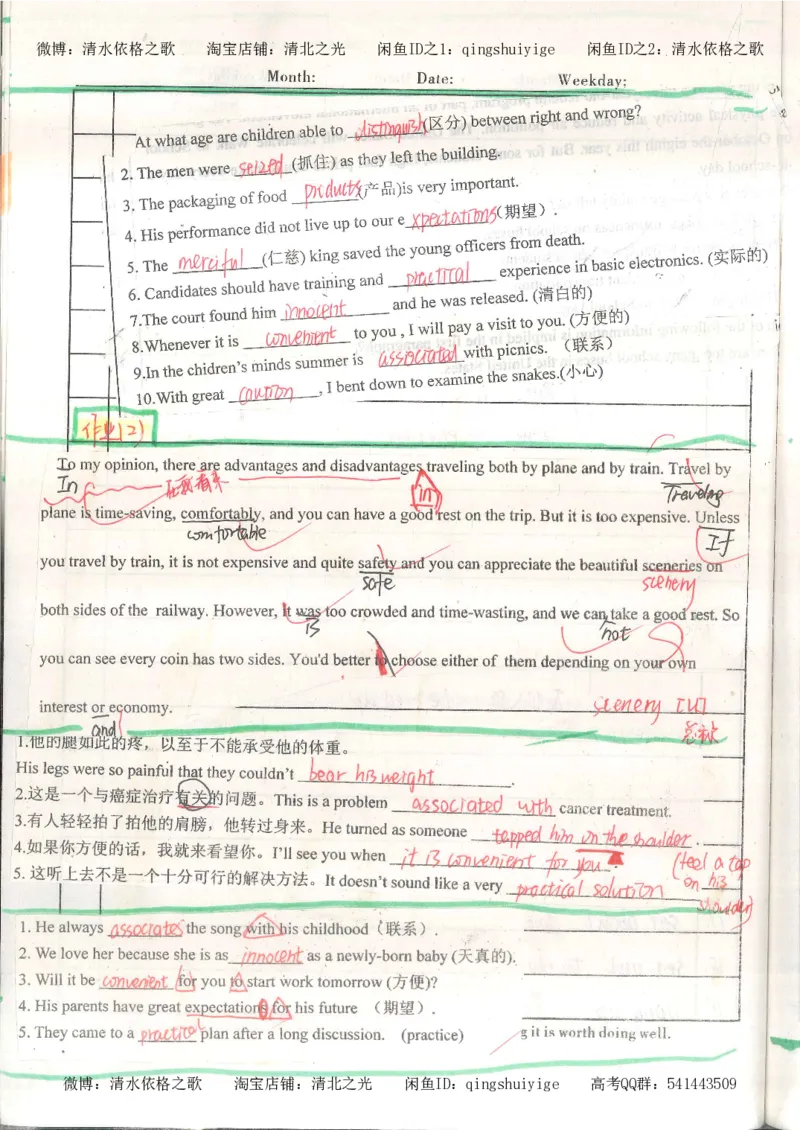 微博：清水依格之歌 淘宝店铺：清北之光 闲鱼ID之1：qingshuiyige 闲鱼ID之2：清水依格之歌
Month: Date: Weekday:
At what age are children able to distinguish(区分) between right and wrong?
2. The men were seized (抓住) as they left the building.
3. The packaging of food products(产品)is very important.
4. His performance did not live up to our expectations(期望).
5. The merciful (仁慈) king saved the young officers from death.
6. Candidates should have training and practical experience in basic electronics. (实际的)
7.The court found him innocent and he was released. (清白的)
8.Whenever it is convenient to you , I will pay a visit to you. (方便的)
9.In the chidren's minds summer is associated with picnics. （联系）
10.With great caution , I bent down to examine the snakes.(小心)
作业(2)
To my opinion, there are advantages and disadvantages traveling both by plane and by train. Travel by
In 在我看来 in Traveling
plane is time-saving, comfortably, and you can have a good rest on the trip. But it is too expensive. Unless
comfortable If
you travel by train, it is not expensive and quite safety and you can appreciate the beautiful sceneries on
safe scenery
both sides of the railway. However, it was too crowded and time-wasting, and we can take a good rest. So
is not
you can see every coin has two sides. You'd better to choose either of them depending on your own
interest or economy. scenery [U]
and 总称
1.他的腿如此的疼，以至于不能承受他的体重。
His legs were so painful that they couldn't bear his weight .
2.这是一个与癌症治疗有关的问题。This is a problem associated with cancer treatment.
3.有人轻轻拍了拍他的肩膀，他转过身来。He turned as someone tapped him on the shoulder .
4.如果你方便的话，我就来看望你。I'll see you when it is convenient for you . (feel a tap
on his
5. 这听上去不是一个十分可行的解决方法。It doesn't sound like a very practical solution
shoulder)
1. He always associates the song with his childhood（联系）.
2. We love her because she is as innocent as a newly-born baby (天真的).
3. Will it be convenient for you to start work tomorrow (方便)?
4. His parents have great expectations for his future （期望）.
5. They came to a practical plan after a long discussion. (practice) g it is worth doing well.
微博：清水依格之歌 淘宝店铺：清北之光 闲鱼ID：qingshuiyige 高考QQ群：541443509